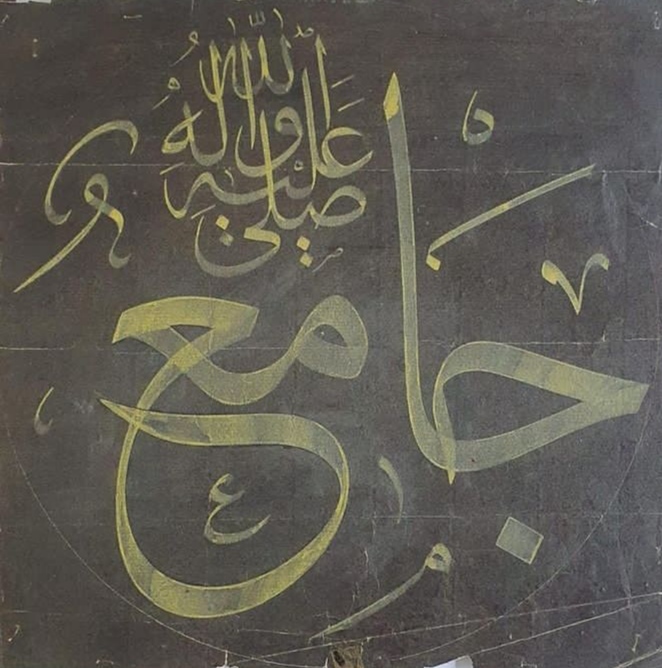 جامع
صلى الله عليه وآله